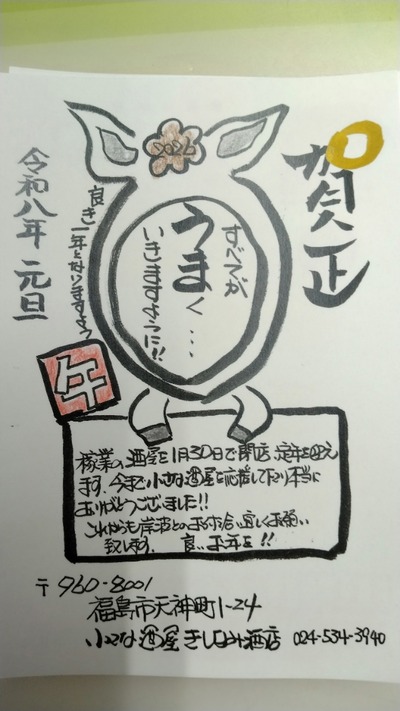 賀正
2026
令和八年 元旦
すべてが
うまく...
いきますように!!
良き一年となりますよう
午
稼業の酒屋を1月30日で閉店、定年を迎え
ます。今まで小さな酒屋を応援して下さり本当に
ありがとうございました!!
これからも岸波とのお付き合い宜しくお願い
致します。良いお年を!!
〒960-8001
福島市天神町1-24
小さな酒屋 きしなみ酒店 024-534-3940